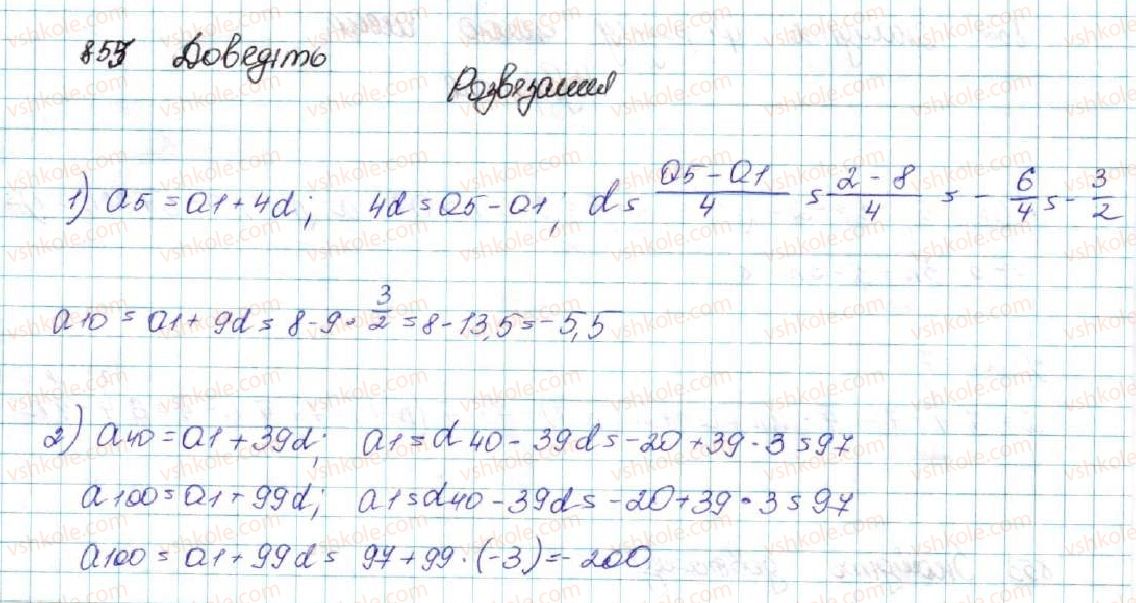 855 Доведіть
Розвезання
1) a5 = a1 + 4d; 4d = a5 - a1, d = (a5 - a1)/4 = (2 - 8)/4 = - 6/4 = - 3/2
a10 = a1 + 9d = 8 - 9 · 3/2 = 8 - 13,5 = -5,5
2) a40 = a1 + 39d; a1 = d40 - 39d = -20 + 39 · 3 = 97
a100 = a1 + 99d; a1 = d40 - 39d = -20 + 39 · 3 = 97
a100 = a1 + 99d = 97 + 99 · (-3) = -200